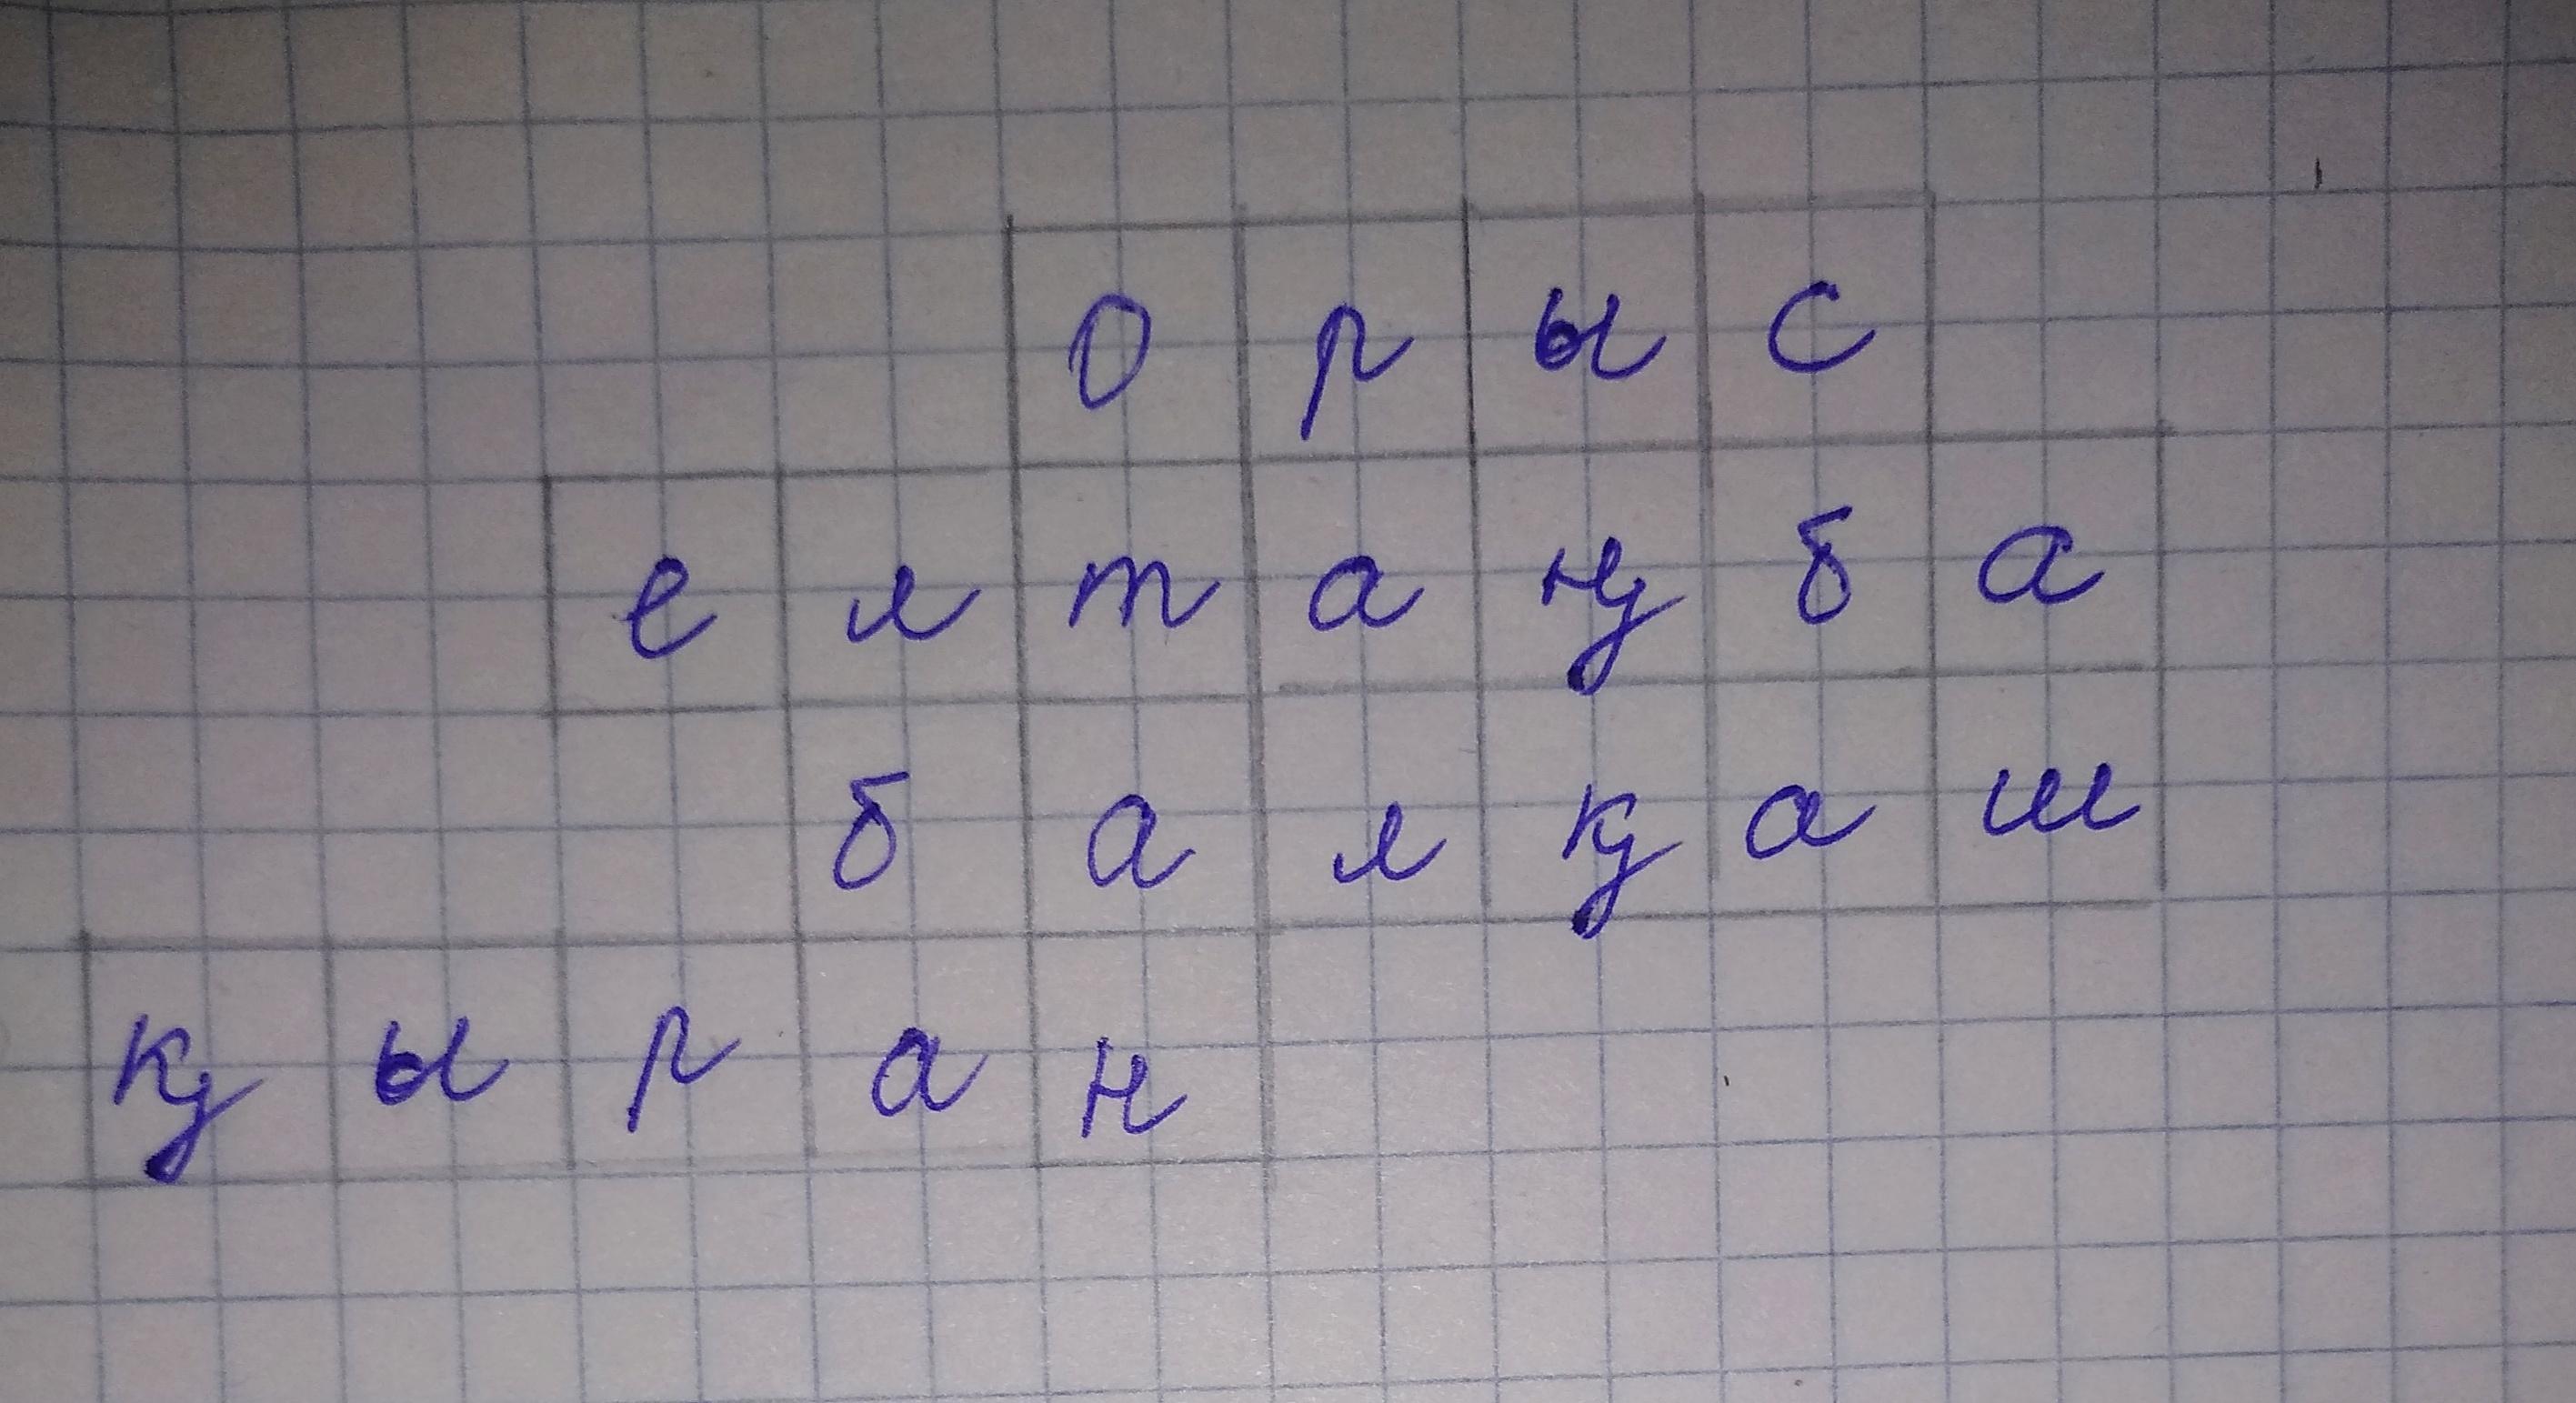 орыс
елтаңба
балқаш
қыран